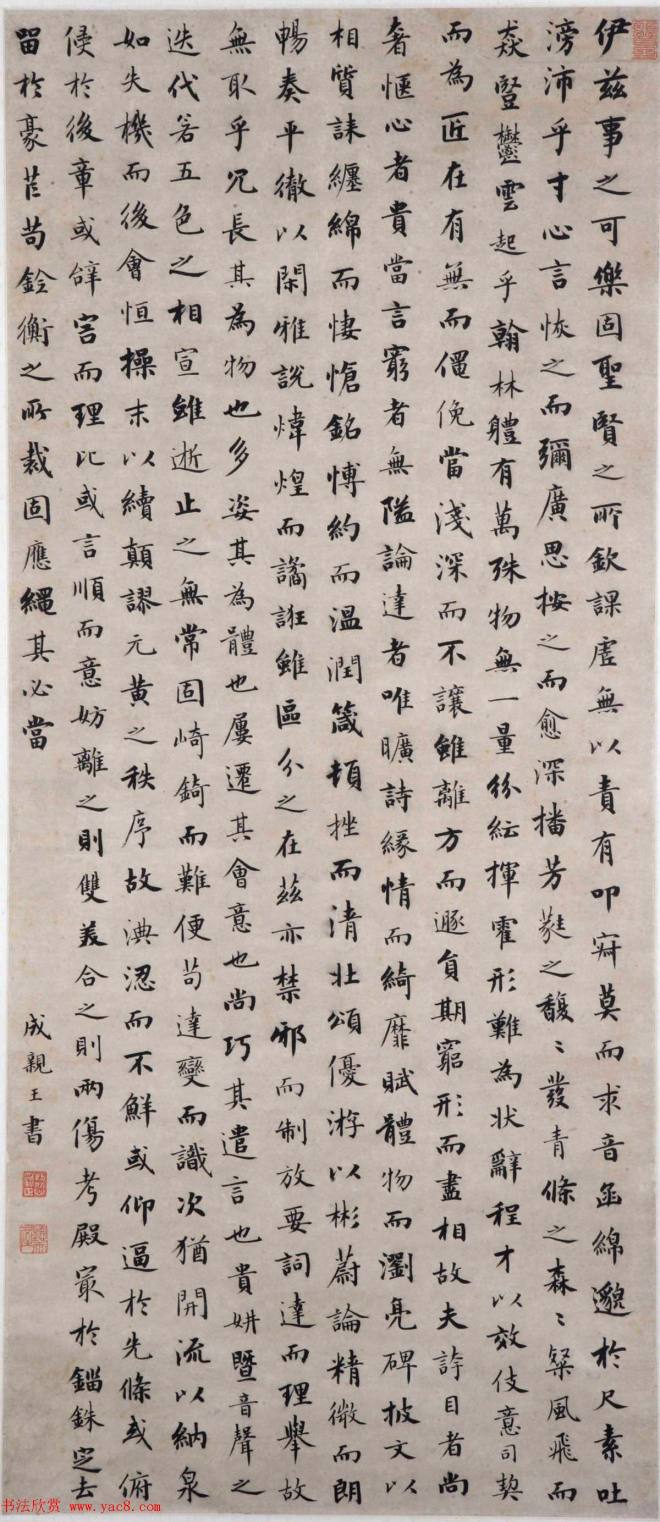 伊茲事之可樂固聖賢之所欽課虛無以責有叩寂莫而求音函綿邈於尺素吐
滂沛乎寸心言恢之而彌廣思按之而愈深播芳蕤之馥〻發青條之森〻粲風飛而
猋豎鬱雲起乎翰林體有萬殊物無一量紛紜揮霍形難為狀辭程才以效伎意司契
而為匠在有無而僶俛當淺深而不讓雖離方而遯負期窮形而盡相故夫誇目者尚
奢愜心者貴當言窮者無隘論達者唯曠詩緣情而綺靡賦體物而瀏亮碑披文以
相質誄纏綿而悽愴銘博約而溫潤箴頓挫而清壯頌優游以彬蔚論精微而朗
暢奏平徹以閑雅說煒煌而譎誑雖區分之在茲亦禁邪而制放要詞達而理舉故
無取乎冗長其為物也多姿其為體也屢遷其會意也尚巧其遣言也貴妍暨音聲之
迭代若五色之相宣雖逝止之無常固崎錡而難便苟達變而識次猶開流以納泉
如失機而後會恒操末以續顛謬元黃之秩序故淟涊而不鮮或仰逼於先條或俯
侵於後章或辭害而理比或言順而意妨離之則雙美合之則兩傷考殿最於錙銖定去
留於豪芒苟銓衡之所裁固應繩其必當
成親王書
书法欣赏 www.yac8.com